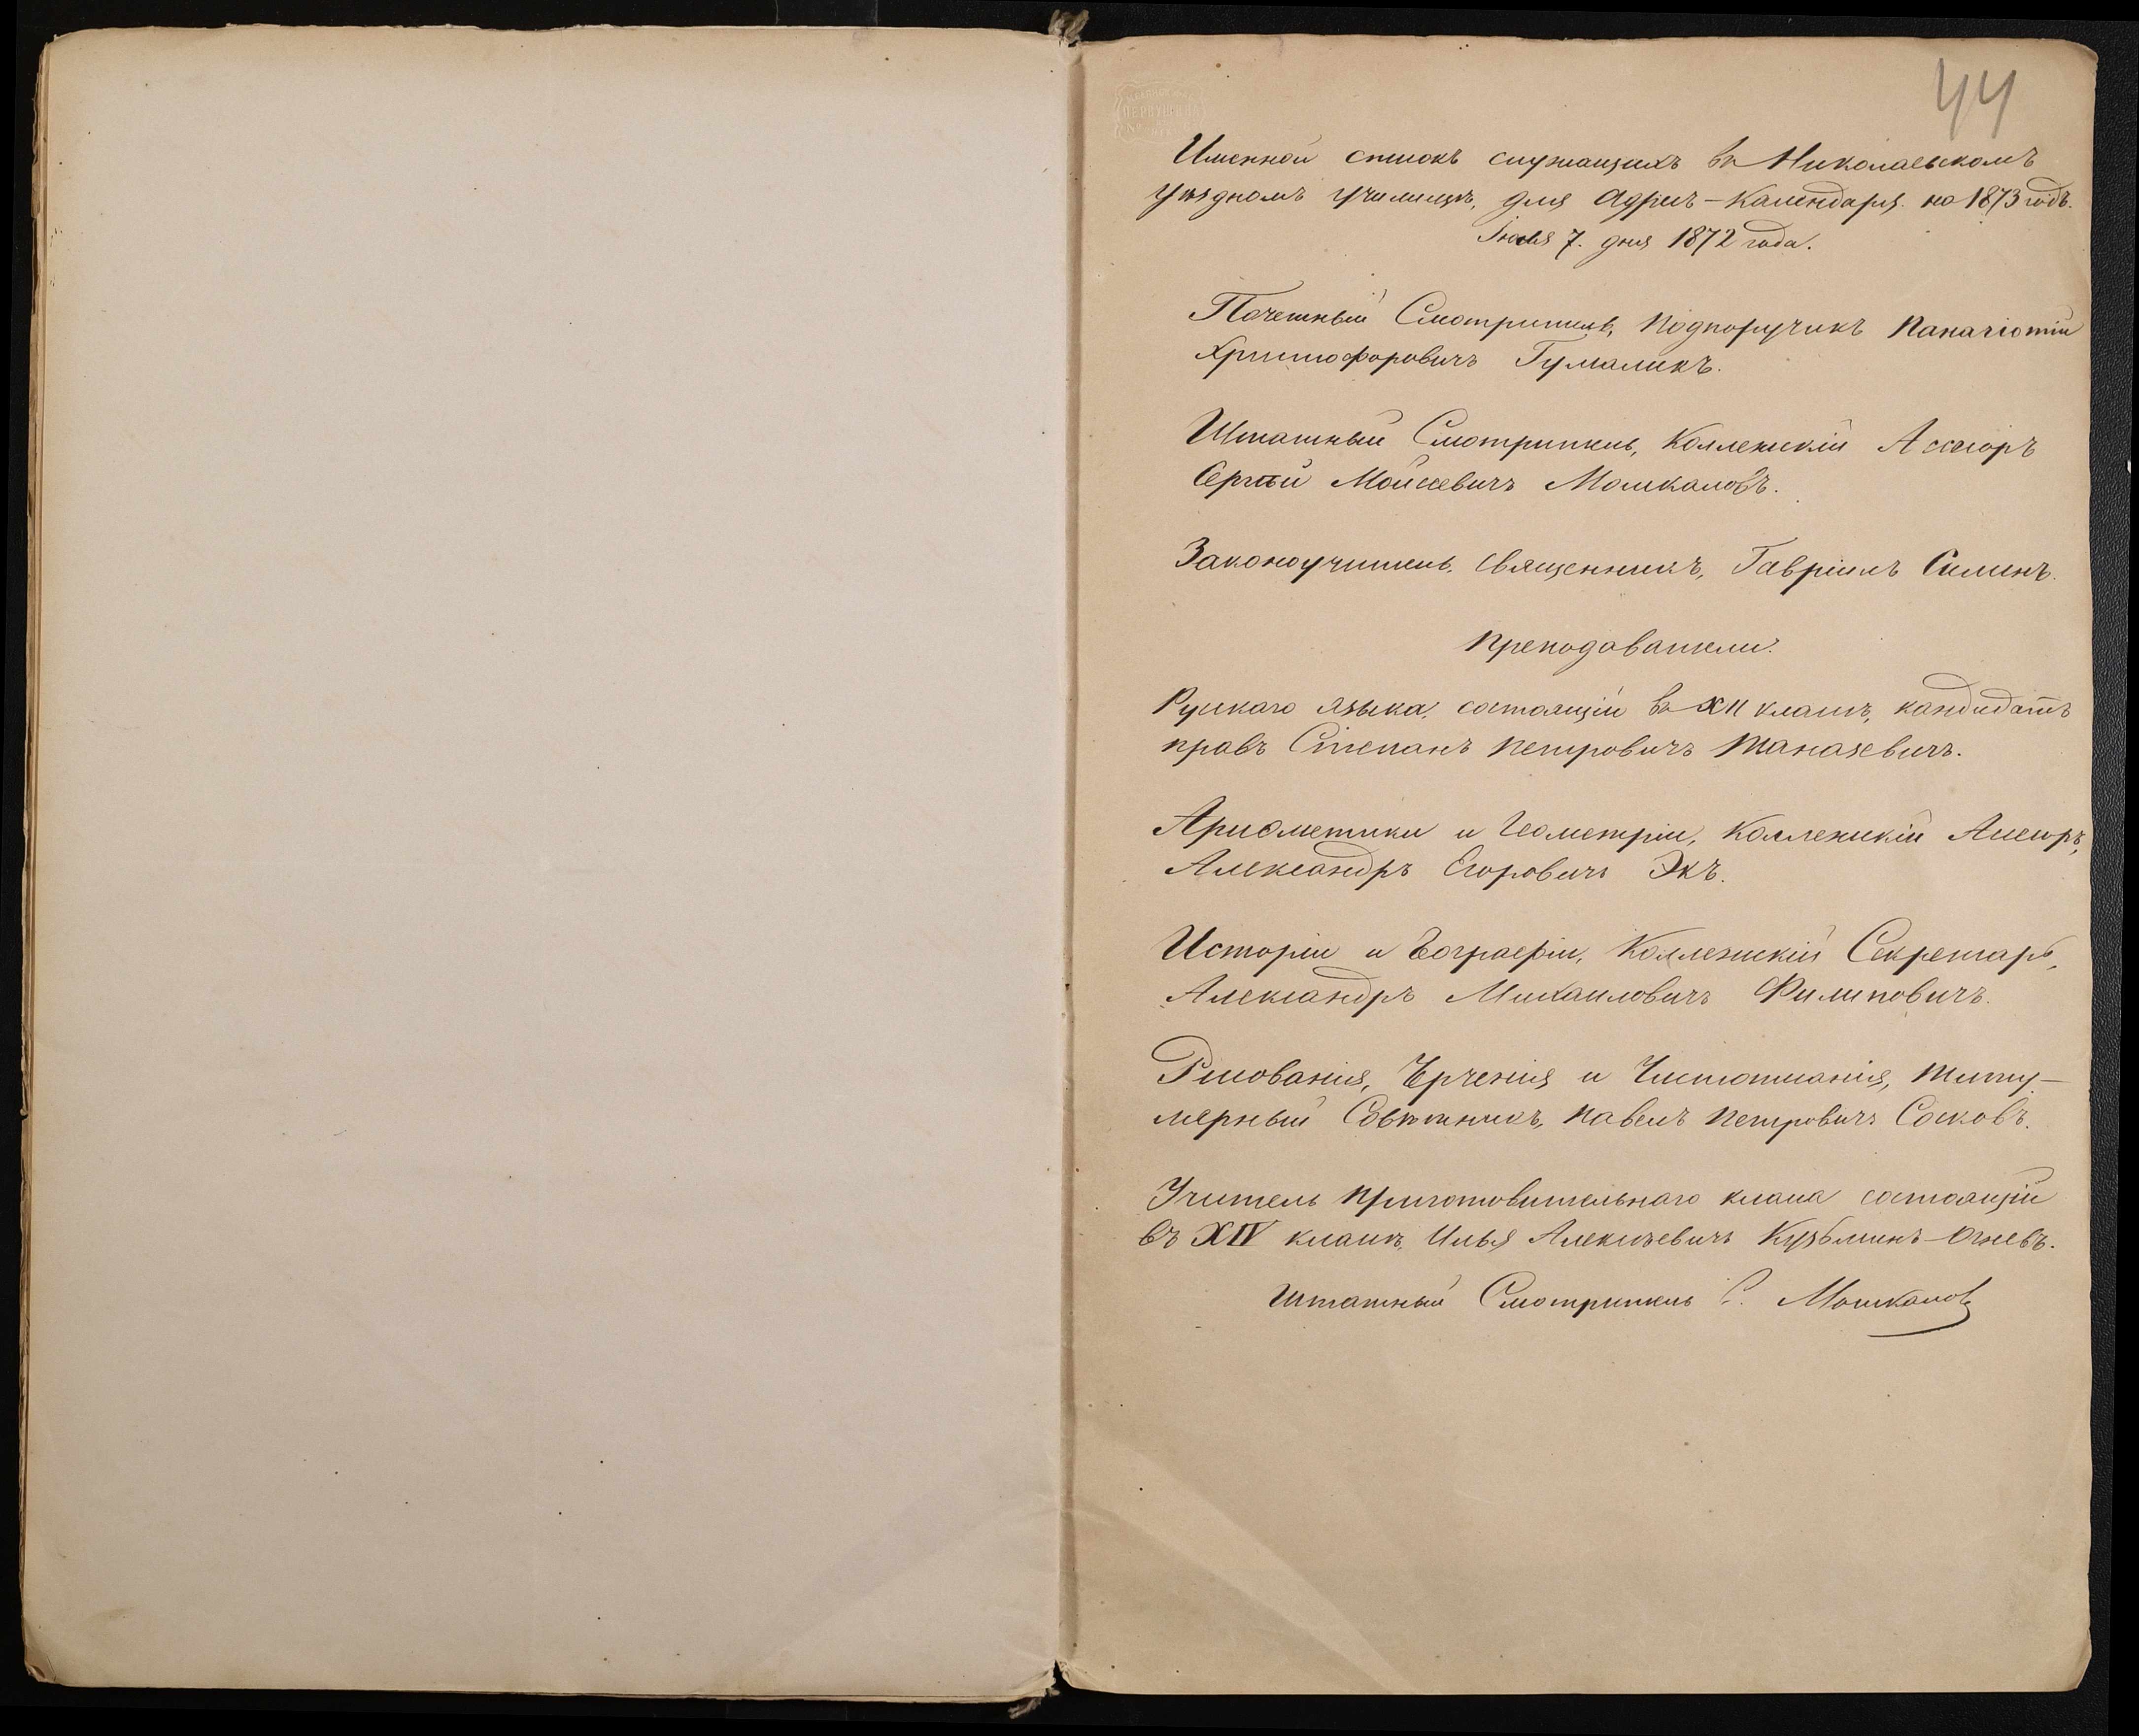 44
Именной списокъ служащихъ въ Николаевскомъ
Уѣздномъ Училищѣ, для Адресъ-Календаря на 1873 годъ.
7. дня 1872 года.
Почетный Смотритель, Подпоручикъ Панагіотій
Христофоровичъ Гумаликъ.
Штатный Смотритель, Коллежскій Ассесоръ
Сергѣй Мойсеевичъ Мошкаловъ.
Законоучитель, Священникъ, Гавріилъ Силинъ.
Преподаватели:
Русскаго языка, состоящій въ XII классѣ, кандидатъ
правъ Степанъ Петровичъ Таназевичъ.
Ариѳметики и Геометріи, Коллежскій Ассесоръ,
Александръ Егоровичъ Экъ.
Исторіи и Географіи, Коллежскій Секретарь,
Александръ Михаиловичъ Филиповичъ.
Рисованія, Черченія и Чистописанія, Титу-
лярный Совѣтникъ, Павелъ Петровичъ Сосковъ.
Учитель приготовительнаго класса состоящій
въ XIV классѣ, Илья Алексѣевичъ Кузьминъ-Огневъ.
Штатный Смотритель С. Мошкаловъ